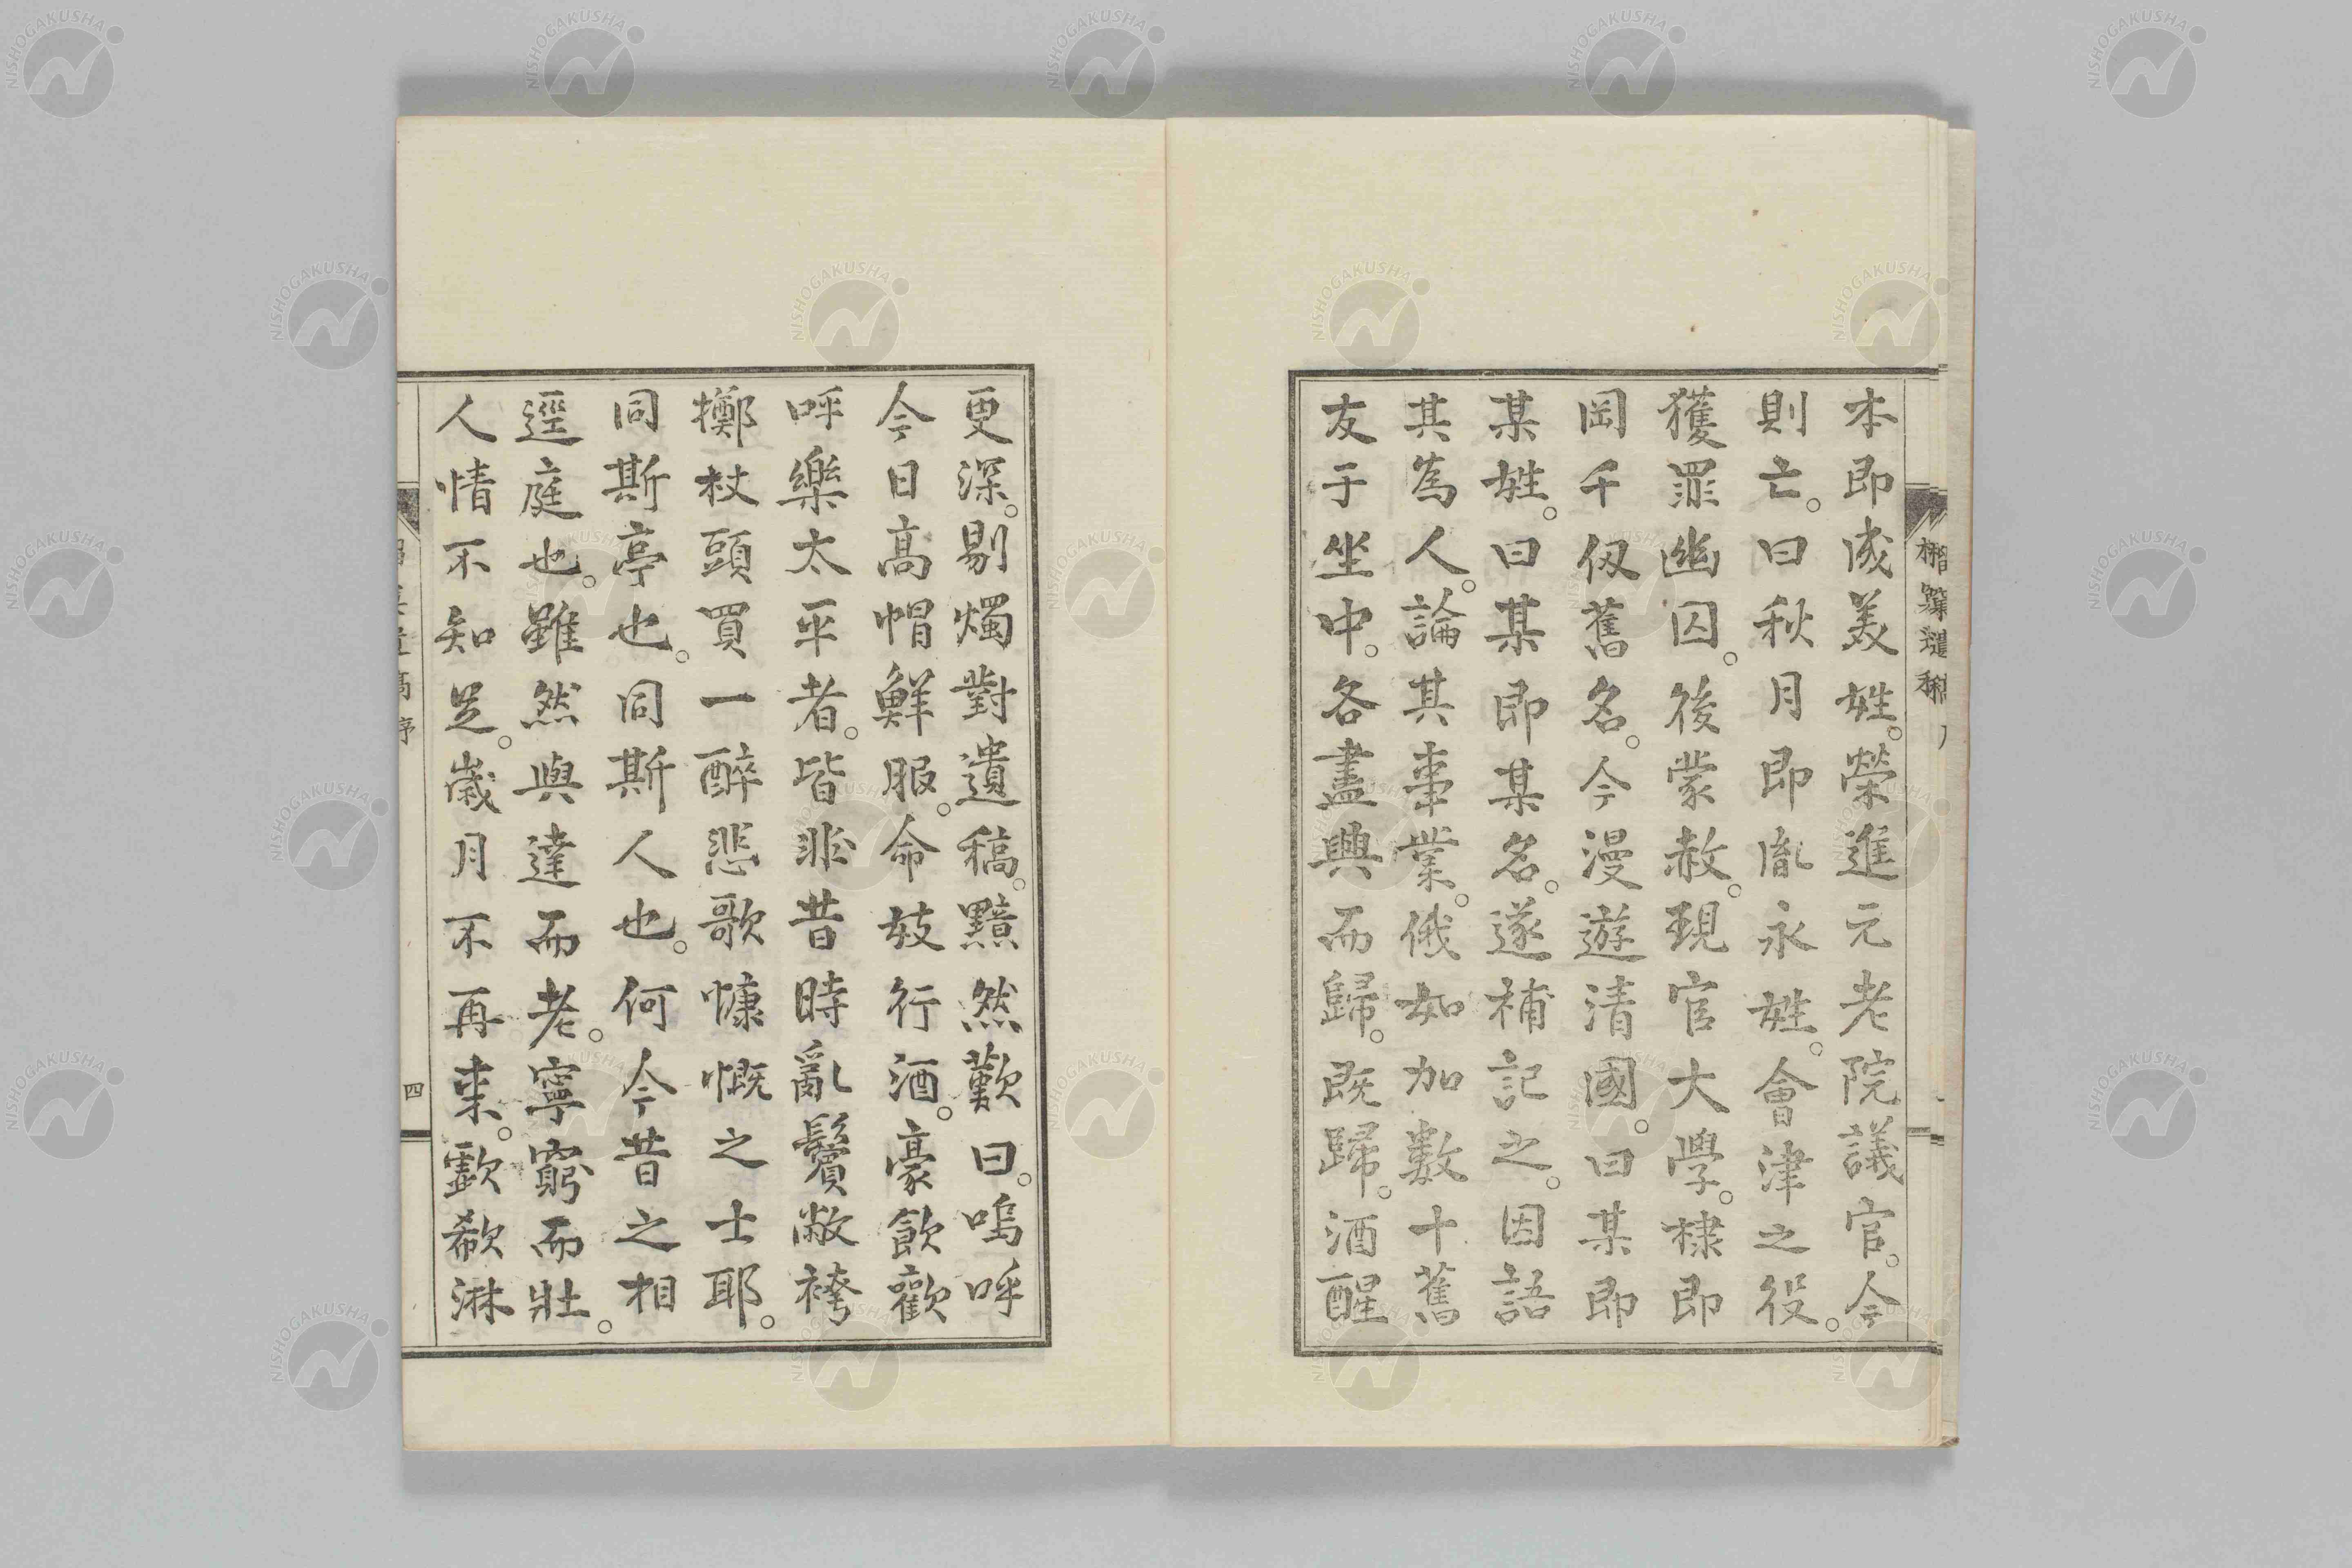 本即成美姓。榮進元老院議官。今
則亡。曰秋月即胤永姓。會津之役。
獲罪幽囚。後蒙赦。現官大學。棣即
岡千仭舊名。今漫遊清國。曰某即
某姓。曰某即某名。遂補記之。因語
其為人。論其事業。俄如加數十舊
友于坐中。各盡興而歸。既歸。酒醒
更深。剔燭對遺稿。黯然歎曰。嗚呼
今日高帽鮮服。命妓行酒。豪飲歡
呼樂太平者。皆非昔時亂鬢敝袴
擲杖頭買一醉悲歌慷慨之士耶。
同斯亭也。同斯人也。何今昔之相
逕庭也。雖然與達而老。寧窮而壯。
人情不知足。歲月不再來。歔欷淋
四
NISHOGAKUSHA